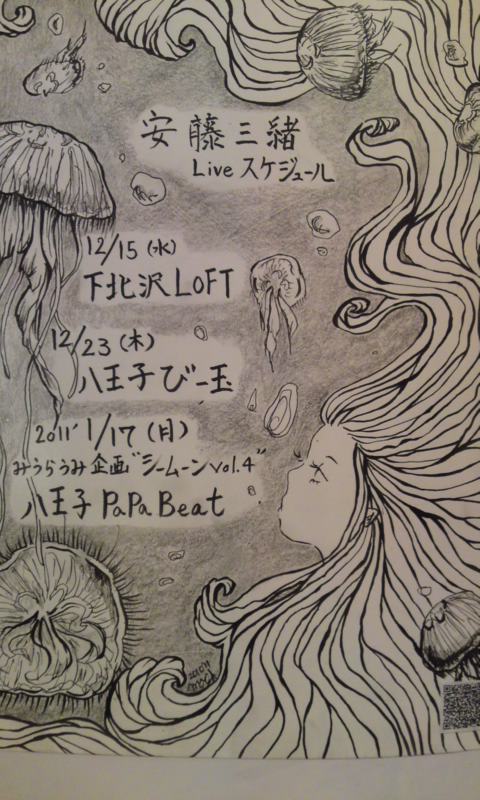 安藤三緒
Live スケジュール
12/15 (水)
下北沢 LOFT
12/23 (木)
八王子 びー玉
2011' 1/17 (月)
みうらうみ企画 "シームーン vol.4"
八王子 PaPa Beat